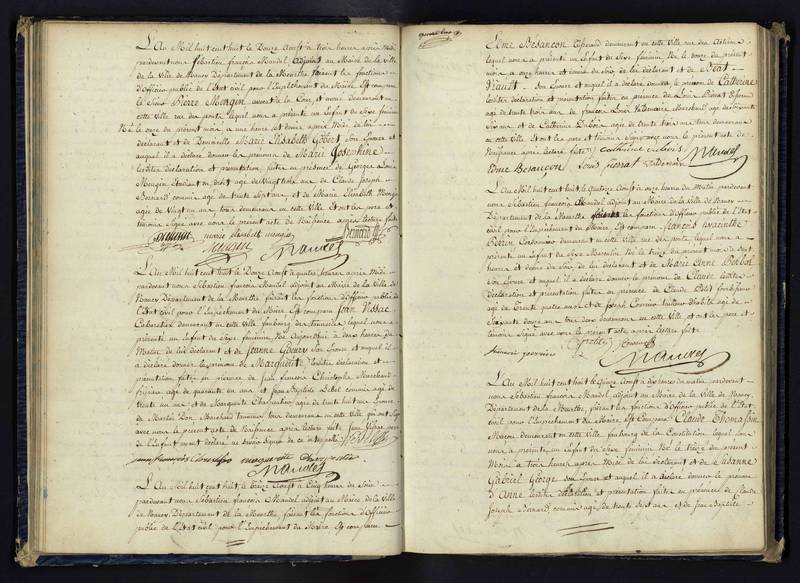 L'An Mil huit cent huit le Douze Aoust à trois heures après Midi
pardevant nous Sébastien françois Mandel Adjoint au Maire de la Ville
de la Ville de Nancy Département de la Meurthe faisant les fonctions
d'Officier public de l'Etat civil pour l'Empêchement du Maire Est comparu
le Sieur Pierre Mengin avocat à la Cour, et nous demeurant en
cette Ville rue des ponts lequel nous a présenté un Enfant du Sexe féminin
Né le onze du présent mois à une heure et demie après Midi de lui
déclarant et de Marie Elisabeth Gobert Son Epouse et
auquel il a déclaré donner les prénoms de Marie Josephine
lesdites déclaration et présentation faites en présence de George Louis
Mengin Etudiant en droit agé de Vingt trois ans de Claude Joseph
Bernard commis agé de trente Sept ans et de Marie Elisabeth Mengin
agée de Vingt un ans tous demeurans en cette Ville Et ont les père et
témoins Signé avec nous le présent acte de Naissance après lecture faite
marie elisabeth mengin
Mengin Bernard
Mandel
L'An Mil huit cent huit le Douze Aoust à quatre heures après Midi
pardevant nous Sébastien françois Mandel adjoint au Maire de la Ville de
Nancy Département de la Meurthe faisant les fonctions d'Officier public de
l'Etat civil pour l'Empêchement du Maire Est comparu Jean Vissac
Cabaretier demeurant en cette Ville faubourg des lequel nous a
présenté un Enfant du Sexe féminin Né Aujourd'hui à deux heures du
Matin de lui déclarant et de Jeanne Son Epouse et auquel il
a déclaré donner le prénom de Marguerite lesdites déclaration et
présentation faites en présence de Jean françois Christophe Marchand
agé de quarante un ans et Jean Baptiste commis agé de
trente un ans et de Marguerite Charpentier agée de trente huit ans Epouse
de Martin Marchand tous demeurans en cette Ville qui ont Signé
avec nous le présent acte de Naissance après lecture faite Jean Vissac père
de l'Enfant ayant déclaré ne Savoir Signer de ce interpellé
jean francois Christophe marguerite charpentier
Mandel
L'An Mil huit cent huit le treize Aoust à Cinq heures du Soir
pardevant nous Sébastien françois Mandel adjoint au Maire de la Ville
de Nancy Département de la Meurthe faisant les fonctions d'Officier
public de l'Etat civil pour l'Empêchement du Maire Est comparu
Edme Bésançon demeurant en cette Ville rue des
lequel nous a présenté un Enfant du Sexe féminin Né le onze du présent
mois à onze heures et demie du Soir de lui déclarant et de
Son Epouse et auquel il a déclaré donner le prénom de Catherine
lesdites déclaration et présentation faites en présence de Louis
agé de trente trois ans de françois Louis Marchand agé de Soixante
ans et de Catherine Dubois agée de trente ans tous demeurans en
cette Ville Et ont les père et témoins Signé avec nous le présent acte de
Naissance après lecture faite catherine dubois
Edme Besançon Louis Mandel
L'An Mil huit cent huit le Quatorze Aoust à onze heures du Matin pardevant
nous Sébastien françois Mandel adjoint au Maire de la Ville de Nancy
Département de la Meurthe faisant les fonctions d'Officier public de l'Etat
civil pour l'Empêchement du Maire Est comparu françois hyacinthe
Cordonnier demeurant en cette Ville rue des ponts lequel nous a
présenté un Enfant du Sexe Masculin Né le treize du présent mois à Sept
heures et demie du Soir de lui déclarant et de Marie Anne
Son Epouse et auquel il a déclaré donner le prénom de Claude lesdites
déclaration et présentation faites en présence de Claude Petit
agé de trente quatre ans et de Joseph tailleur d'habits agé de
Soixante douze ans tous deux demeurans en cette Ville et ont les père et
témoins Signé avec nous le présent acte après lecture faite
Mandel
L'An Mil huit cent huit le Quinze Aoust à dix heures du matin pardevant
nous Sébastien françois Mandel adjoint au Maire de la Ville de Nancy
Département de la Meurthe faisant les fonctions d'Officier public de l'Etat
civil pour l'Empêchement du Maire Est Comparu Claude Thomassin
demeurant en cette Ville faubourg de la Constitution lequel
nous a présenté un Enfant du Sexe féminin Né le treize du présent
Mois à trois heures après Midi de lui déclarant et de Susanne
Gabriel George Son Epouse et auquel il a déclaré donner le prénom
d'Anne lesdites déclaration et présentation faites en présence de Claude
Joseph Bernard commis agé de trente Sept ans et de Jean Baptiste